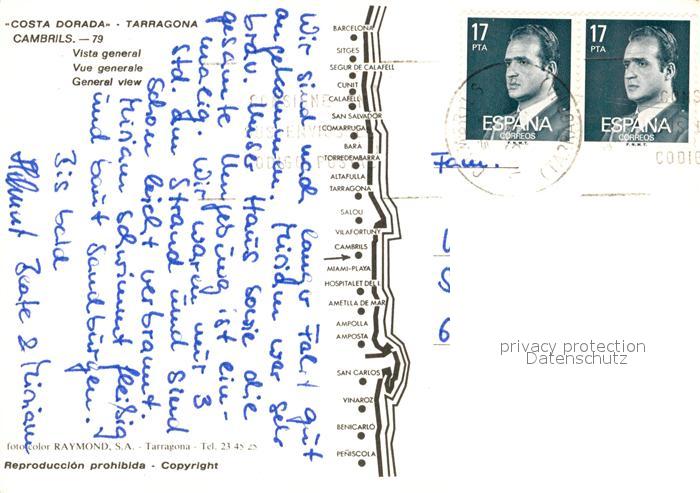 "COSTA DORADA" - TARRAGONA
CAMBRILS. — 79
Vista general
Vue generale
General view
Wir sind nach langer Fahrt gut
angekommen. Miriam war sehr
brav. Unser Haus sowie die
gesamte Umgebung ist ein-
malig. Wir waren nur 3
Std. am Strand und sind
schon leicht verbrannt.
Miriam schwimmt fleißig
und baut Sandburgen.
Bis bald
Helmut Beate & Miriam
BARCELONA
SITGES
SEGUR DE CALAFELL
CUNIT
CALAFELL
SAN SALVADOR
COMARRUGA
BARA
TORREDEMBARRA
ALTAFULLA
TARRAGONA
SALOU
VILAFORTUNY
CAMBRILS
MIAMI-PLAYA
HOSPITALET DEL I.
AMETLLA DE MAR
AMPOLLA
AMPOSTA
SAN CARLOS
VINAROZ
BENICARLÓ
PEÑISCOLA
17
PTA
ESPAÑA
CORREOS
F.N.M.T.
17
PTA
ESPAÑA
CORREOS
F.N.M.T.
Fam.
6
privacy protection
Datenschutz
foto color RAYMOND, S.A. - Tarragona - Tel. 23 45 25
Reproducción prohibida - Copyright